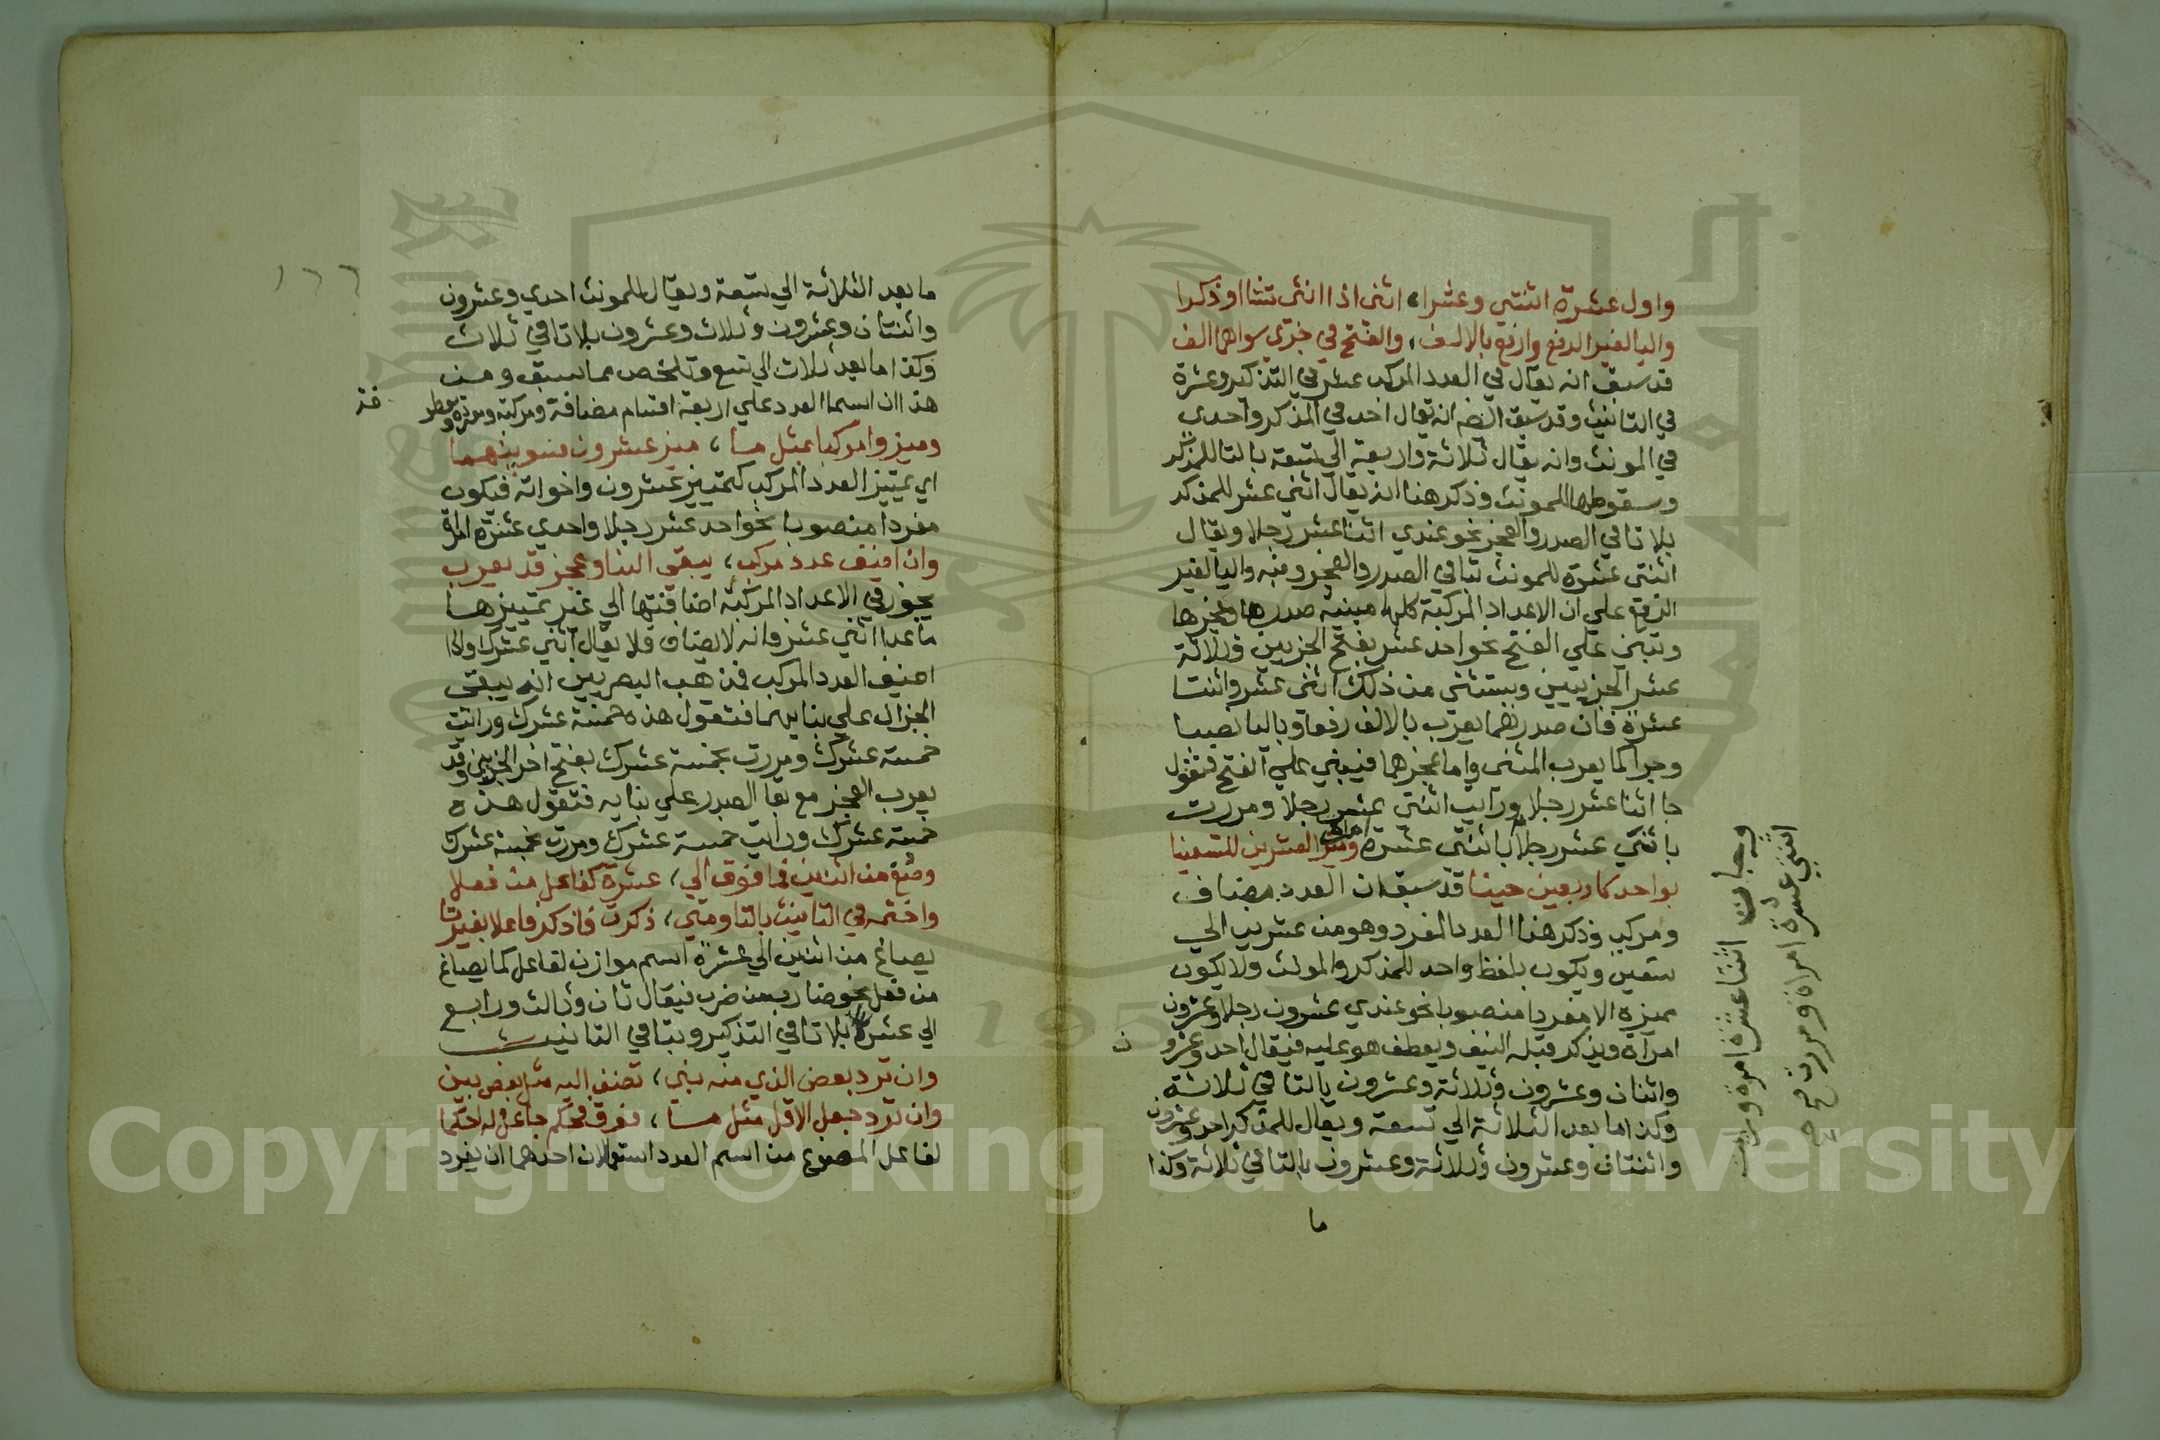 واول عشرة اثنتي وعشرا، اثنى اذا انثى تشا او ذكرا
واليا لغير الرفع وارفع بالالف، والفتح في جزءي سواهما الف
قد سبق انه يقال في العدد المركب عشر في التذكير وعشرة
في التانيث وقد سبق ايضا انه يقال احد في المذكر واحدى
في المونث وانه يقال ثلاثة واربعة الي تسعة بالتا للمذكر
وسقوطها للمونث وذكر هنا انه يقال اثني عشر للمذكر
بلا تا في الصدر والعجز نحو عندي اثنا عشر رجلا ويقال
اثنتي عشرة للمونث بتا في الصدر والعجز ونبه واليا لغير
الرفع علي ان الاعداد المركبة كلها مبنية صدرها وعجزها
وتبني علي الفتح نحو احد عشر بفتح الجزيين وثلاثة
عشر الجزيين ويستثنى من ذلك اثني عشر واثنتا
عشرة فان صدرهما يعرب بالالف رفعا وباليا نصبا
وجرا كما يعرب المثنى واما عجزهما فيبني علي الفتح فتقول
جا اثنا عشر رجلا ورايت اثني عشر رجلا ومررت
باثني عشر رجلا باثنتي عشرة امراة وميز العشرين للتسعينا
بواحد كاربعين حينا قد سبق ان العدد مضاف
ومركب وذكر هنا العدد المفرد وهو من عشرين الي
تسعين ويكون بلفظ واحد للمذكر والمونث ولا يكون
مميزه الا مفردا منصوبا نحو عندي عشرون رجلا وعشرون
امراة ويذكر قبله النيف ويعطف هو عليه فيقال احد وعشرون
واثنان وعشرون وثلاثة وعشرون بالتا في ثلاثة
وكذا ما بعد الثلاثة الي تسعة ويقال للمذكر احد وعشرون
واثنتان وعشرون وثلاثة وعشرون بالتا في ثلاثة وكذا
ما
وجات اثنتا عشرة امرة ورايت
اثنتي عشرة امراة ومررت صح
١٢٢
ما بعد الثلاثة الي تسعة ويقال للمونث احدي وعشرون
واثنتان وعشرون وثلاث وعشرون بلا تا في ثلاث
وكذا ما بعد ثلاث الي تسع وتلخص مما سبق ومن
هذا ان اسما العدد علي اربعة اقسام مضافة ومركبة ومفردة ومعطو
فة
وميزوا مركبا بمثل ما، ميز عشرون فسوينهما
اي تمييز العدد المركب كتمييز عشرون واخواته فيكون
مفردا منصوبا نحو احد عشر رجلا واحدي عشرة امراة
وان اضيف عدد مركب، يبقي البنا وعجز قد يعرب
يجوز في الاعداد المركبة اضافتها الي غير تمييزها
ما عدا اثني عشر فانه لا يضاف فلا يقال اثني عشرك واذا
اضيف العدد المركب فمذهب البصريين انه يبقى
الجزان علي بنايهما فتقول هذه خمسة عشرك ورايت
خمسة عشرك ومررت بخمسة عشرك بفتح اخر الجزيين وقد
يعرب العجز مع بقا الصدر علي بنايه فتقول هذه
خمسة عشرك ورايت خمسة عشرك ومررت بخمسة عشرك
وصغ من اثنين فما فوق الي، عشرة كفاعل من فعلا
واختمه في التانيث بالتا ومتي، ذكرت فاذكر فاعلا بغير تا
يصاغ من اثنين الي عشرة اسم موازن لفاعل كما يصاغ
من فعل نحو ضارب من ضرب فيقال ثان وثالث ورابع
الي عشرة بلا تا في التذكير وبتا في التانيث
وان ترد بعض الذي منه بني، تضف اليه مثل بعض بين
وان ترد جعل الاقل مثل ما، فوق فحكم جاعل له احكما
لفاعل المصوغ من اسم العدد استعمالان احدهما ان يفرد
Copyright © King Saud University